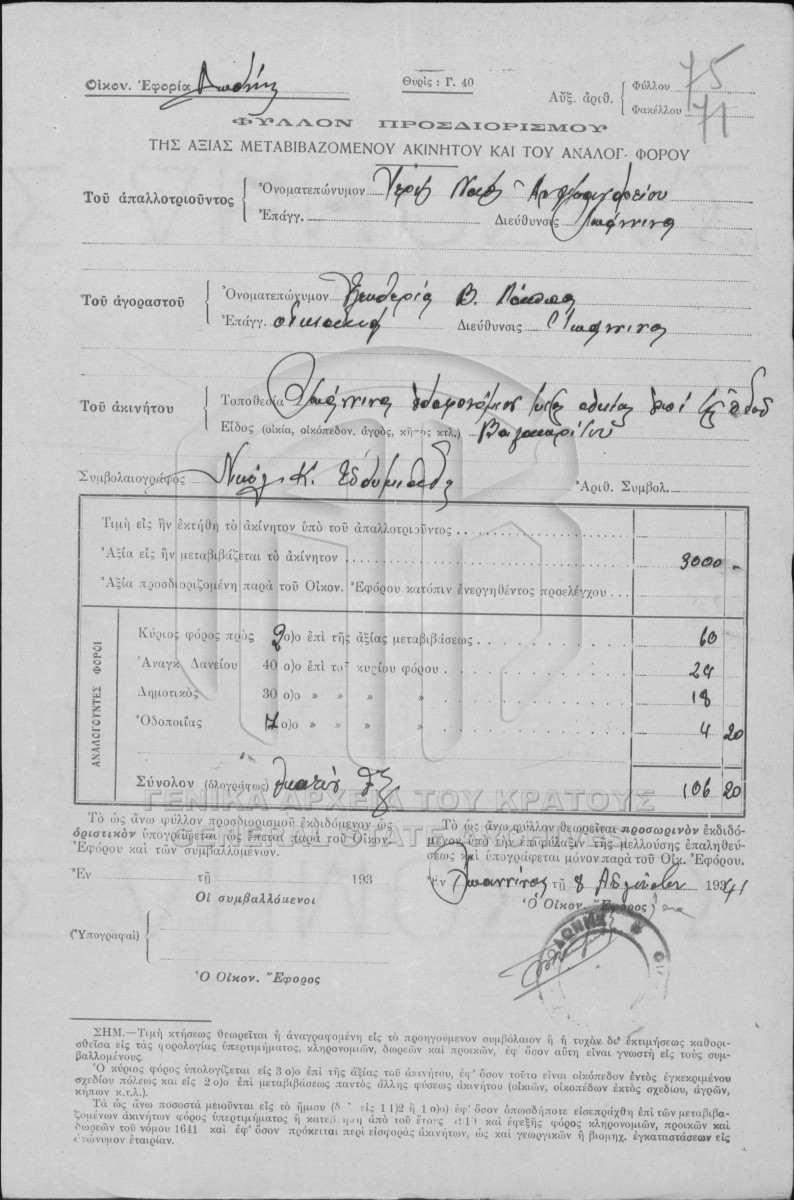 Οἰκον. Ἐφορία Δωδώνης
Θυρίς : Γ. 40
Αὔξ. ἀριθ. { Φύλλου 75
Φακέλλου 71
ΦΥΛΛΟΝ ΠΡΟΣΔΙΟΡΙΣΜΟΥ
ΤΗΣ ΑΞΙΑΣ ΜΕΤΑΒΙΒΑΖΟΜΕΝΟΥ ΑΚΙΝΗΤΟΥ ΚΑΙ ΤΟΥ ΑΝΑΛΟΓ· ΦΟΡΟΥ
Τοῦ ἀπαλλοτριοῦντος { Ὀνοματεπώνυμον
Ἐπάγγ. Διεύθυνσις Ἰωάννινα
Τοῦ ἀγοραστοῦ { Ὀνοματεπώνυμον Ἐλευθερία Β. Πάππα
Ἐπάγγ. οἰκιακά Διεύθυνσις Ἰωάννινα
Τοῦ ἀκινήτου { Τοποθεσία Ἰωάννινα ἐπὶ ὁδοῦ
Εἶδος (οἰκία, οἰκόπεδον. ἀγρὸς, κῆπος κτλ.) Βαλαωρίτου
Συμβολαιογράφος Νικόλ. Κ. Ἀριθ. Συμβολ.
Τιμὴ εἰς ἣν ἐκτήθη τὸ ἀκίνητον ὑπὸ τοῦ ἀπαλλοτριοῦντος
Ἀξία εἰς ἣν μεταβιβάζεται τὸ ἀκίνητον 3000 -
Ἀξία προσδιοριζομένη παρὰ τοῦ Οἰκον. Ἐφόρου κατόπιν ἐνεργηθέντος προελέγχου
ΑΝΑΛΟΓΟΥΝΤΕΣ ΦΟΡΟΙ
Κύριος φόρος πρὸς 2 ο)ο ἐπὶ τῆς ἀξίας μεταβιβάσεως 60
Ἀναγκ Δανείου 40 ο)ο ἐπὶ τοῦ κυρίου φόρου 24
Δημοτικὸς 30 ο)ο » » » » 18
Ὁδοποιΐας 7 ο)ο » » » » 4 20
Σύνολον (ὁλογράφως) ἑκατὸν ἓξ 106 20
ΓΕΝΙΚΑ ΑΡΧΕΙΑ ΤΟΥ ΚΡΑΤΟΥΣ
GENERAL STATE ARCHIVES
Τὸ ὡς ἄνω φύλλον προσδιορισμοῦ ἐκδιδόμενον ὡς
ὁριστικὸν ὑπογράφεται ὡς ἕπεται παρὰ τοῦ Οἰκον.
Ἐφόρου καὶ τῶν συμβαλλομένων.
Ἐν τῇ 193
Οἱ συμβαλλόμενοι
(Ὑπογραφαὶ)
Ὁ Οἰκον. Ἔφορος
Τὸ ὡς ἄνω φύλλον θεωρεῖται προσωρινὸν ἐκδιδό-
μενον ὑπὸ τὴν ἐπιφύλαξιν τῆς μελλούσης ἐπαληθεύ-
σεως καὶ ὑπογράφεται μόνον παρὰ τοῦ Οἰκ. Ἐφόρου.
Ἐν Ἰωαννίνοις τῇ 8 1941
Ὁ Οἰκον. Ἔφορος
ΣΗΜ.—Τιμὴ κτήσεως θεωρεῖται ἡ ἀναγραφομένη εἰς τὸ προηγούμενον συμβόλαιον ἢ ἡ τυχὸν δι' ἐκτιμήσεως καθορι-
σθεῖσα εἰς τὰς φορολογίας ὑπερτιμήματος, κληρονομιῶν, δωρεῶν καὶ προικῶν, ἐφ' ὅσον αὕτη εἶναι γνωστὴ εἰς τοὺς συμ-
βαλλομένους.
Ὁ κύριος φόρος ὑπολογίζεται εἰς 3 ο)ο ἐπὶ τῆς ἀξίας τοῦ ἀκινήτου, ἐφ' ὅσον τοῦτο εἶναι οἰκόπεδον ἐντὸς ἐγκεκριμένου
σχεδίου πόλεως καὶ εἰς 2 ο)ο ἐπὶ μεταβιβάσεως παντὸς ἄλλης φύσεως ἀκινήτου (οἰκιῶν, οἰκοπέδων ἐκτὸς σχεδίου, ἀγρῶν,
κήπων κ.τ.λ.).
Τὰ ὡς ἄνω ποσοστὰ μειοῦνται εἰς τὸ ἥμισυ εἰς 1 1)2 ἢ 1 ο)ο) ἐφ' ὅσον ὁπωσδήποτε εἰσεπράχθη ἐπὶ τῶν μεταβιβα-
ζομένων ἀκινήτων φόρος ὑπερτιμήματος ἢ ἀπὸ τοῦ ἔτους καὶ ἐφεξῆς φόρος κληρονομιῶν, προικῶν καὶ
δωρεῶν τοῦ νόμου 1641 καὶ ἐφ' ὅσον πρόκειται περὶ εἰσφορᾶς ἀκινήτου, ὡς καὶ γεωργικῶν ἢ βιομηχ. ἐγκαταστάσεων εἰς
ἀνώνυμον ἑταιρίαν.